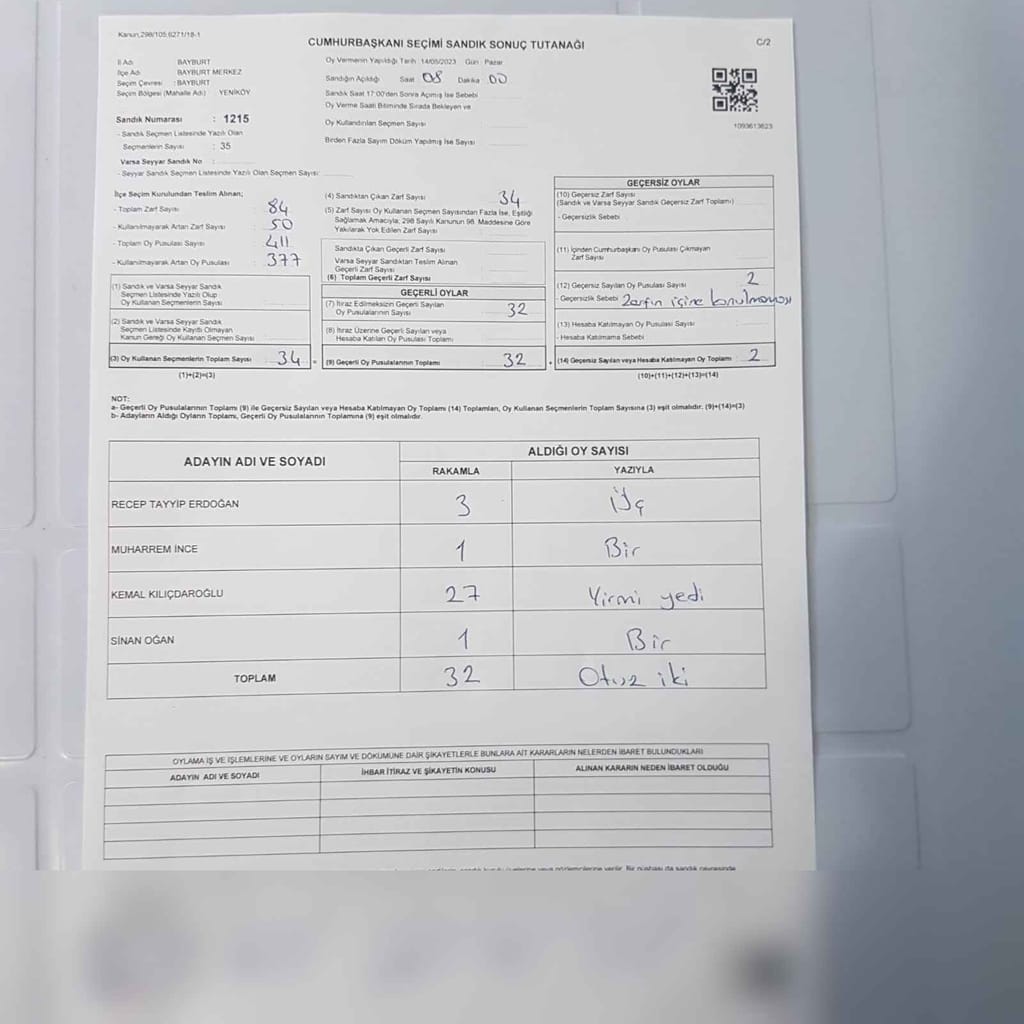 Kanun,298/105,6271/18-1
C/2
CUMHURBAŞKANI SEÇİMİ SANDIK SONUÇ TUTANAĞI
İl Adı BAYBURT
İlçe Adı : BAYBURT MERKEZ
Seçim Çevresi : BAYBURT
Seçim Bölgesi (Mahalle Adı) YENİKÖY
Sandık Numarası : 1215
- Sandık Seçmen Listesinde Yazılı Olan
Seçmenlerin Sayısı : 35
Varsa Seyyar Sandık No :
- Seyyar Sandık Seçmen Listesinde Yazılı Olan Seçmen Sayısı:
Oy Vermenin Yapıldığı Tarih 14/05/2023 Gün Pazar
Sandığın Açıldığı Saat 08 Dakika 00
Sandık Saat 17:00'den Sonra Açılmış İse Sebebi
Oy Verme Saati Bitiminde Sırada Bekleyen ve
Oy Kullandırılan Seçmen Sayısı
Birden Fazla Sayım Döküm Yapılmış İse Sayısı
1093613623
İlçe Seçim Kurulundan Teslim Alınan;
- Toplam Zarf Sayısı 84
- Kullanılmayarak Artan Zarf Sayısı 50
- Toplam Oy Pusulası Sayısı 411
- Kullanılmayarak Artan Oy Pusulası 377
(1) Sandık ve Varsa Seyyar Sandık
Seçmen Listesinde Yazılı Olup
Oy Kullanan Seçmenlerin Sayısı
(2) Sandık ve Varsa Seyyar Sandık
Seçmen Listesinde Kayıtlı Olmayan
Kanun Gereği Oy Kullanan Seçmen Sayısı
(3) Oy Kullanan Seçmenlerin Toplam Sayısı 34 =
(1)+(2)=(3)
(4) Sandıktan Çıkan Zarf Sayısı 34
(5) Zarf Sayısı Oy Kullanan Seçmen Sayısından Fazla İse, Eşitliği
Sağlamak Amacıyla, 298 Sayılı Kanunun 98. Maddesine Göre
Yakılarak Yok Edilen Zarf Sayısı
Sandıkta Çıkan Geçerli Zarf Sayısı
Varsa Seyyar Sandıktan Teslim Alınan
Geçerli Zarf Sayısı
(6) Toplam Geçerli Zarf Sayısı
GEÇERLİ OYLAR
(7) İtiraz Edilmeksizin Geçerli Sayılan
Oy Pusulalarının Sayısı 32
(8) İtiraz Üzerine Geçerli Sayılan veya
Hesaba Katılan Oy Pusulaları Toplamı
(9) Geçerli Oy Pusulalarının Toplamı 32 +
GEÇERSİZ OYLAR
(10) Geçersiz Zarf Sayısı
(Sandık ve Varsa Seyyar Sandık Geçersiz Zarf Toplamı)
- Geçersizlik Sebebi
(11) İçinden Cumhurbaşkanı Oy Pusulası Çıkmayan
Zarf Sayısı
(12) Geçersiz Sayılan Oy Pusulası Sayısı 2
- Geçersizlik Sebebi Zarfın içine konulmayışı
(13) Hesaba Katılmayan Oy Pusulası Sayısı
- Hesaba Katılmama Sebebi
(14) Geçersiz Sayılan veya Hesaba Katılmayan Oy Toplamı 2
(10)+(11)+(12)+(13)=(14)
NOT:
a- Geçerli Oy Pusulalarının Toplamı (9) ile Geçersiz Sayılan veya Hesaba Katılmayan Oy Toplamı (14) Toplamları, Oy Kullanan Seçmenlerin Toplam Sayısına (3) eşit olmalıdır. (9)+(14)=(3)
b- Adayların Aldığı Oyların Toplamı, Geçerli Oy Pusulalarının Toplamına (9) eşit olmalıdır.
ADAYIN ADI VE SOYADI ALDIĞI OY SAYISI
RAKAMLA YAZIYLA
RECEP TAYYİP ERDOĞAN 3 Üç
MUHARREM İNCE 1 Bir
KEMAL KILIÇDAROĞLU 27 Yirmi yedi
SİNAN OĞAN 1 Bir
TOPLAM 32 Otuz iki
OYLAMA İŞ VE İŞLEMLERİNE VE OYLARIN SAYIM VE DÖKÜMÜNE DAİR ŞİKAYETLERLE BUNLARA AİT KARARLARIN NELERDEN İBARET BULUNDUKLARI
ADAYIN ADI VE SOYADI İHBAR İTİRAZ VE ŞİKAYETİN KONUSU ALINAN KARARIN NEDEN İBARET OLDUĞU
verilir. Bir nüshası da sandık çevresinde